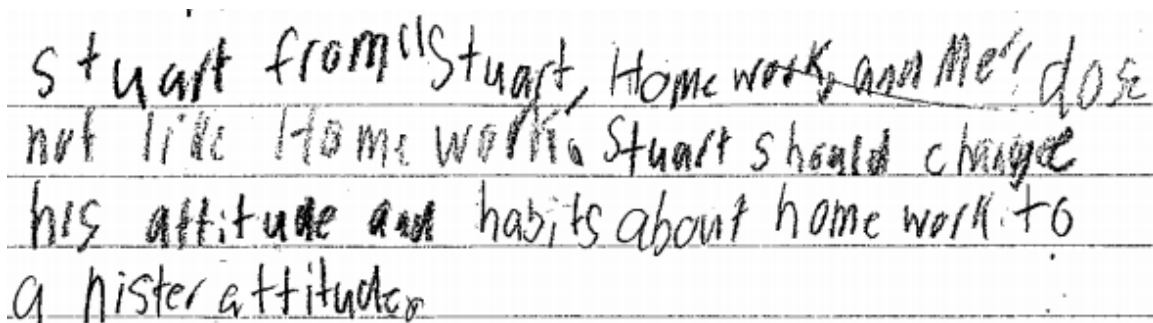 Stuart from "Stuart, Home work, and Me" dose
not like Home work. Stuart should change
his attitude and habits about home work to
a nister attitude.